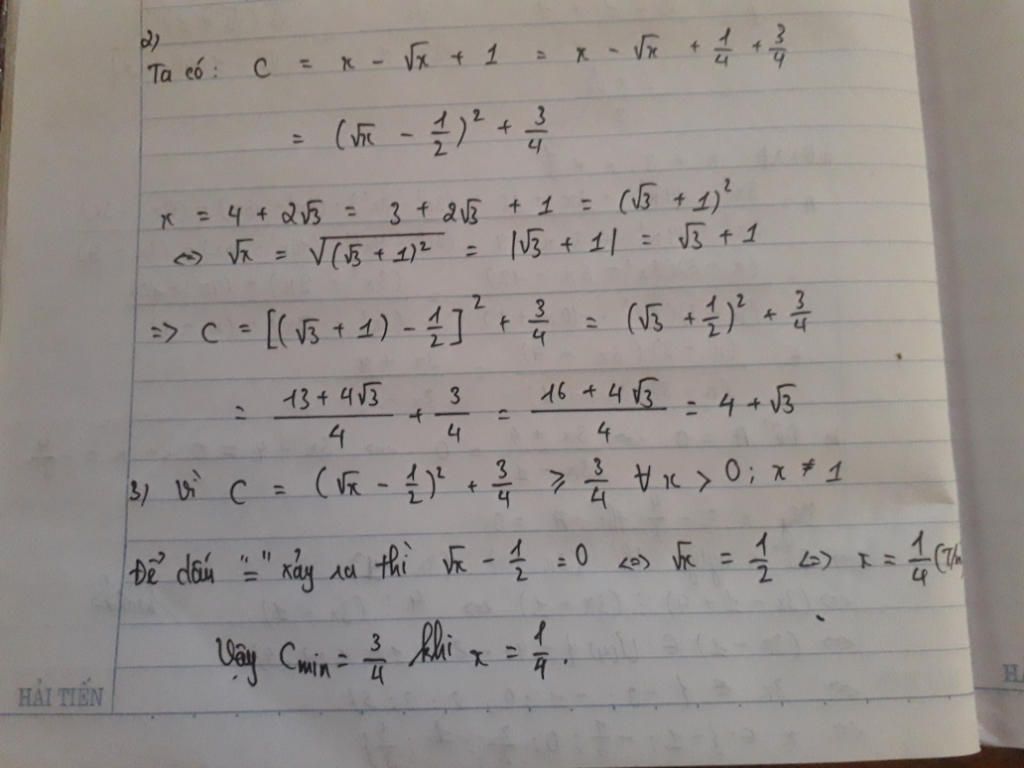 2)
Ta có: C = x - √x + 1 = x - √x + 1/4 + 3/4
= (√x - 1/2)² + 3/4
x = 4 + 2√3 = 3 + 2√3 + 1 = (√3 + 1)²
<=> √x = √((√3 + 1)²) = |√3 + 1| = √3 + 1
=> C = [(√3 + 1) - 1/2]² + 3/4 = (√3 + 1/2)² + 3/4
= (13 + 4√3)/4 + 3/4 = (16 + 4√3)/4 = 4 + √3
3) Vì C = (√x - 1/2)² + 3/4 ≥ 3/4 ∀x > 0; x ≠ 1
Để dấu "=" xảy ra thì √x - 1/2 = 0 <=> √x = 1/2 <=> x = 1/4 (T/m
Vậy Cmin = 3/4 khi x = 1/4.
HẢI TIẾN